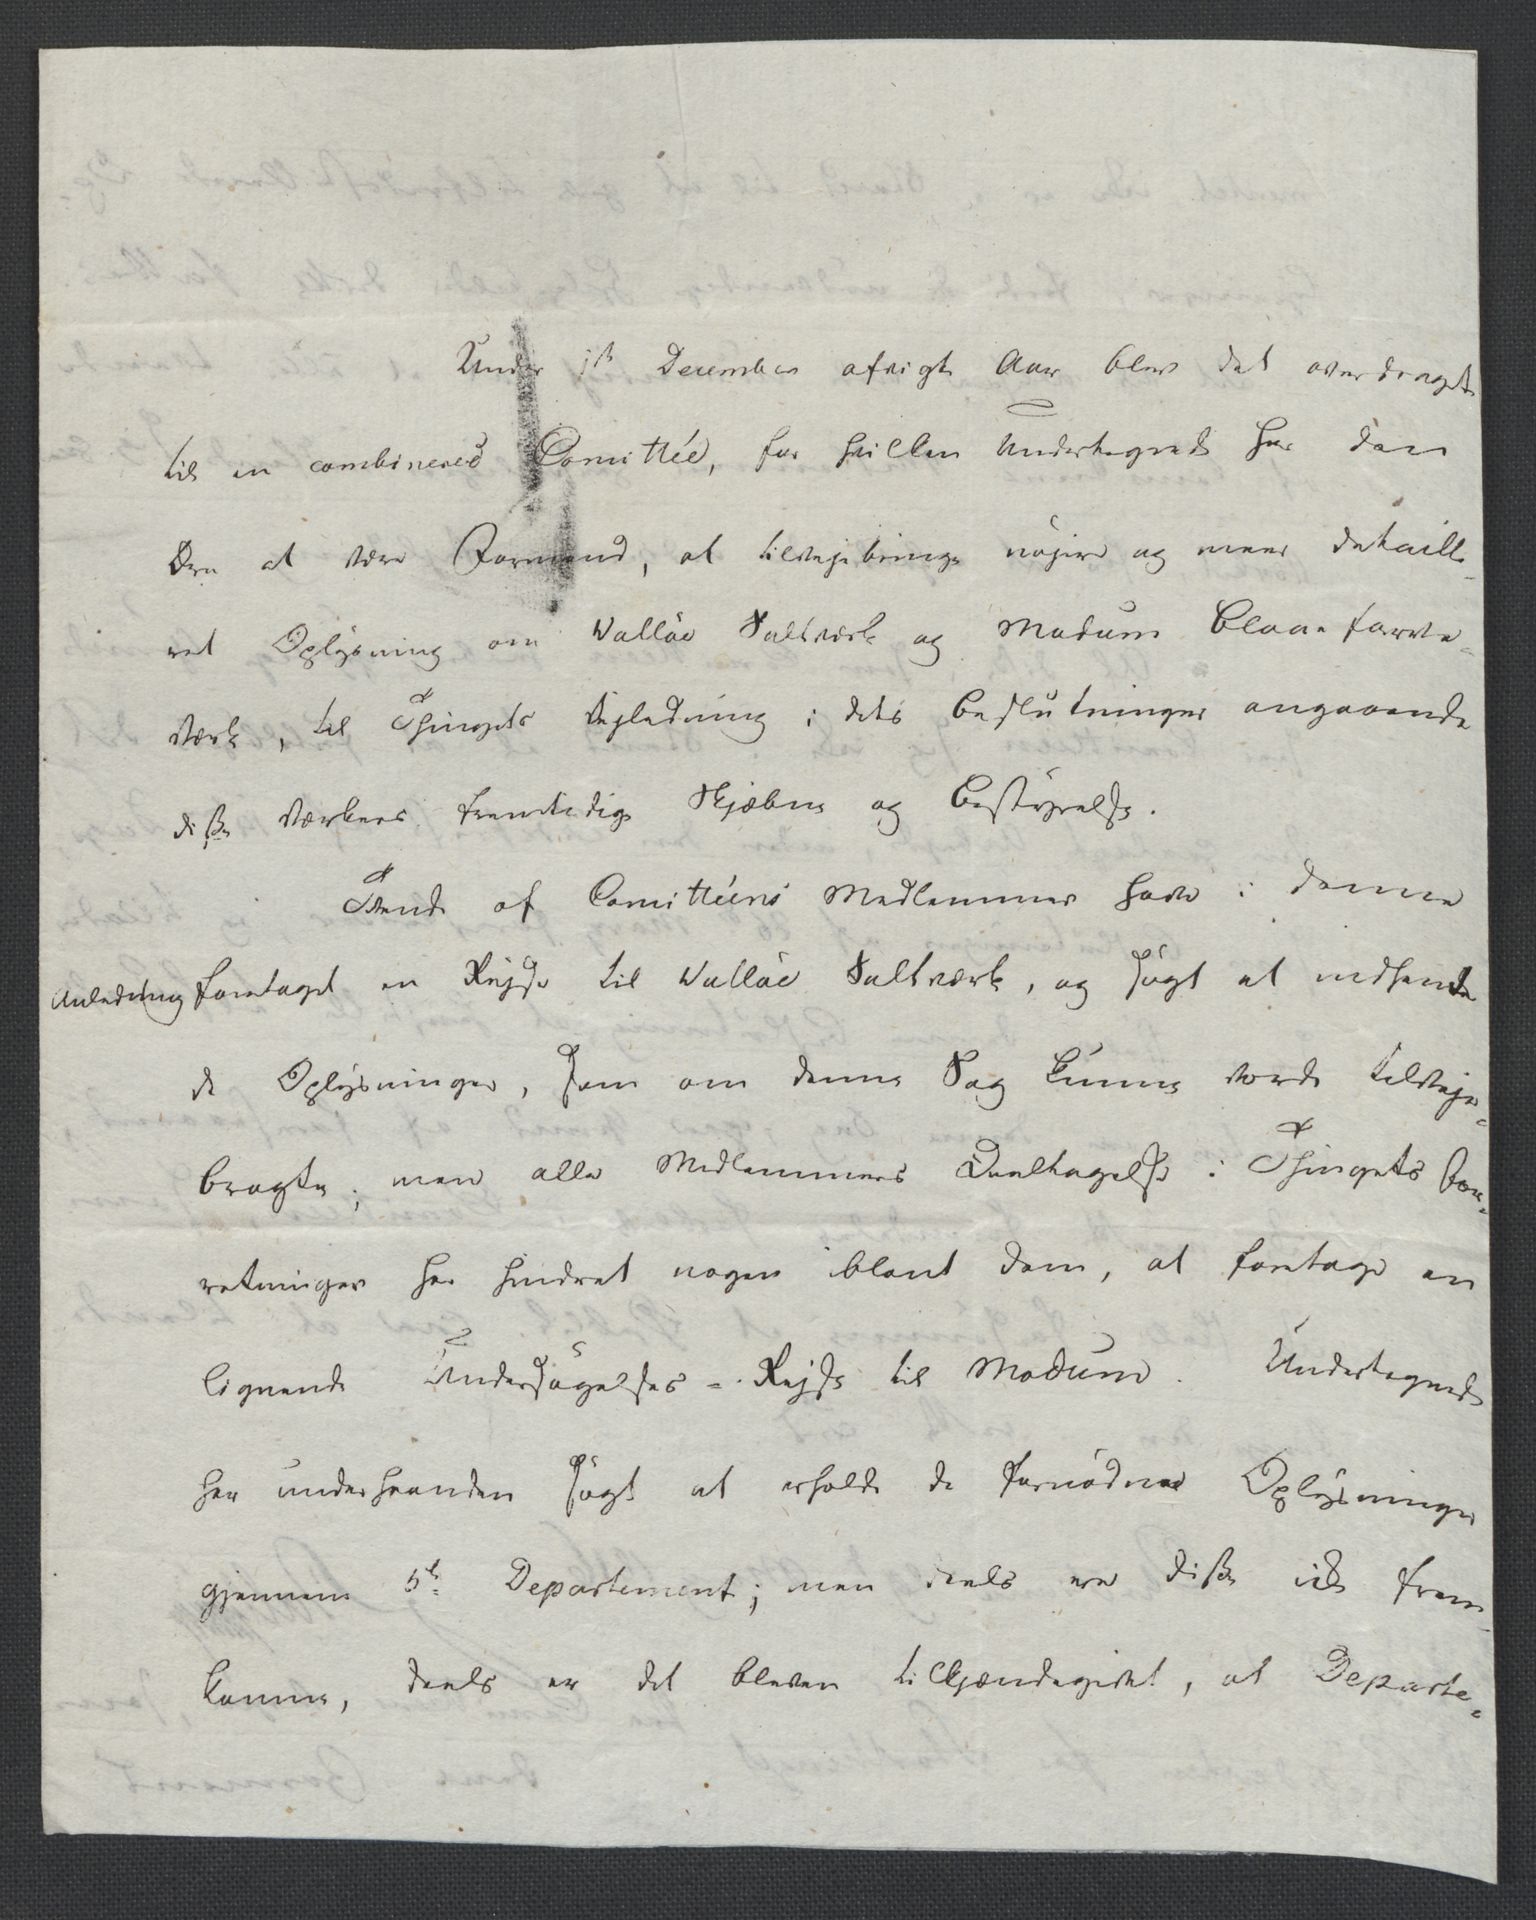 Under 1ste December afvigte Aar blev det overdraget
til en combineret Comittée, for hvilken Undertegnede har den
Ære at være Formand, at tilvejebringe nøjere og meer detaille-
ret Oplysning om Walløe Saltværk og Modum Blaaefarve-
værk, til Thingets Vejledning i dets Beslutninger angaaende
disse Værkers fremtidige Skjæbne og Bestyrelse.
Tvende af Comittéens Medlemmer have i denne
Anledning foretaget en Rejse til Walløe Saltværk, og søgt at indhente
de Oplysninger, som om denne Sag kunne vorde tilveje-
bragte; men alle Medlemmers Deeltagelse i Thingets For-
retninger har hindret nogen iblant dem, at foretage en
lignende Undersøgelses-Rejse til Modum. Undertegnede
har underhaanden søgt at erholde de fornødne Oplysninger
gjennem 5te Departement; men deels ere disse ikke frem-
komne, deels er det bleven tilkjændegivet, at Departe-